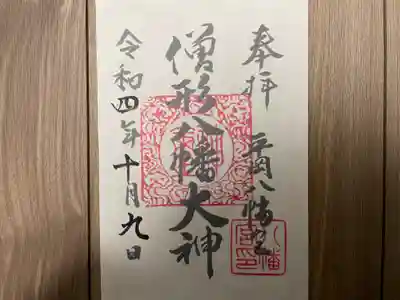 奉拝 平岡八幡宮
僧形八幡大神
令和四年十月九日